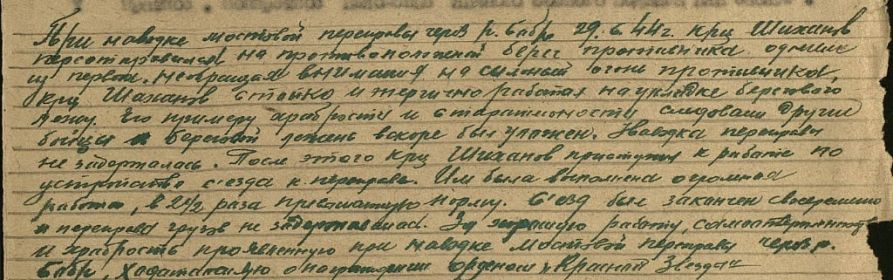 При наводке мостовой переправы через р. Бобр 29.6.44г. крц Шиханов
переправился на противоположный берег противника одним
из первых. Необращая внимания на сильный огонь противника,
крц Шиханов стойко и энергично работал на укладке берегового
лежня. Его примеру храбрости и старательности следовали другие
бойцы и береговой лежень вскоре был уложен. Наводка переправы
не задержалась. После этого крц Шиханов приступил к работе по
устройства съезда к переправе. Им была выполнена огромная
работа, в 2½ раза превышающую норму. Съезд был закончен своевременно
и переправа грузов не задерживалась. За хорошую работу, самоотверженность
и храбрость проявленную при наводке мостовой переправы через р.
Бобр, ходатайствую о награждении орденом "Красной Звезды"